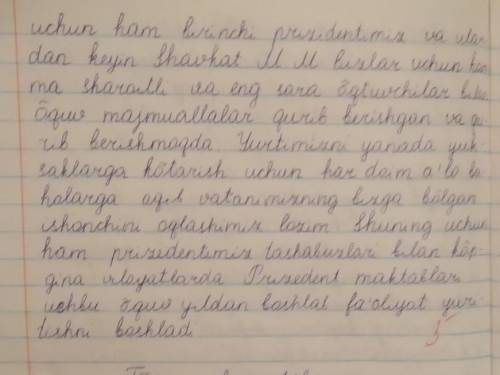 uchun ham birinchi prizidentimiz va ular
dan keyin Shavkat M M bizlar uchun ham
ma sharoitli va eng sara õqituvchilar bilan
õquv majmuallalar qurib berishgan va qu
rib berishmoqda. Yurtimizni yanada yuk
saklarga kõtarish uchun har doim a'lo ba
holarga oqib vatanimizning bizga bõlgan
ishonchini oqlashimiz lozim Shuning uchun
ham prizidentimiz tashabuzlari bilan kõp
gina viloyatlarda Prizedent maktablari
uchbu õquv yildan boshlab fa'oliyat yuri
tishni boshladi.
5